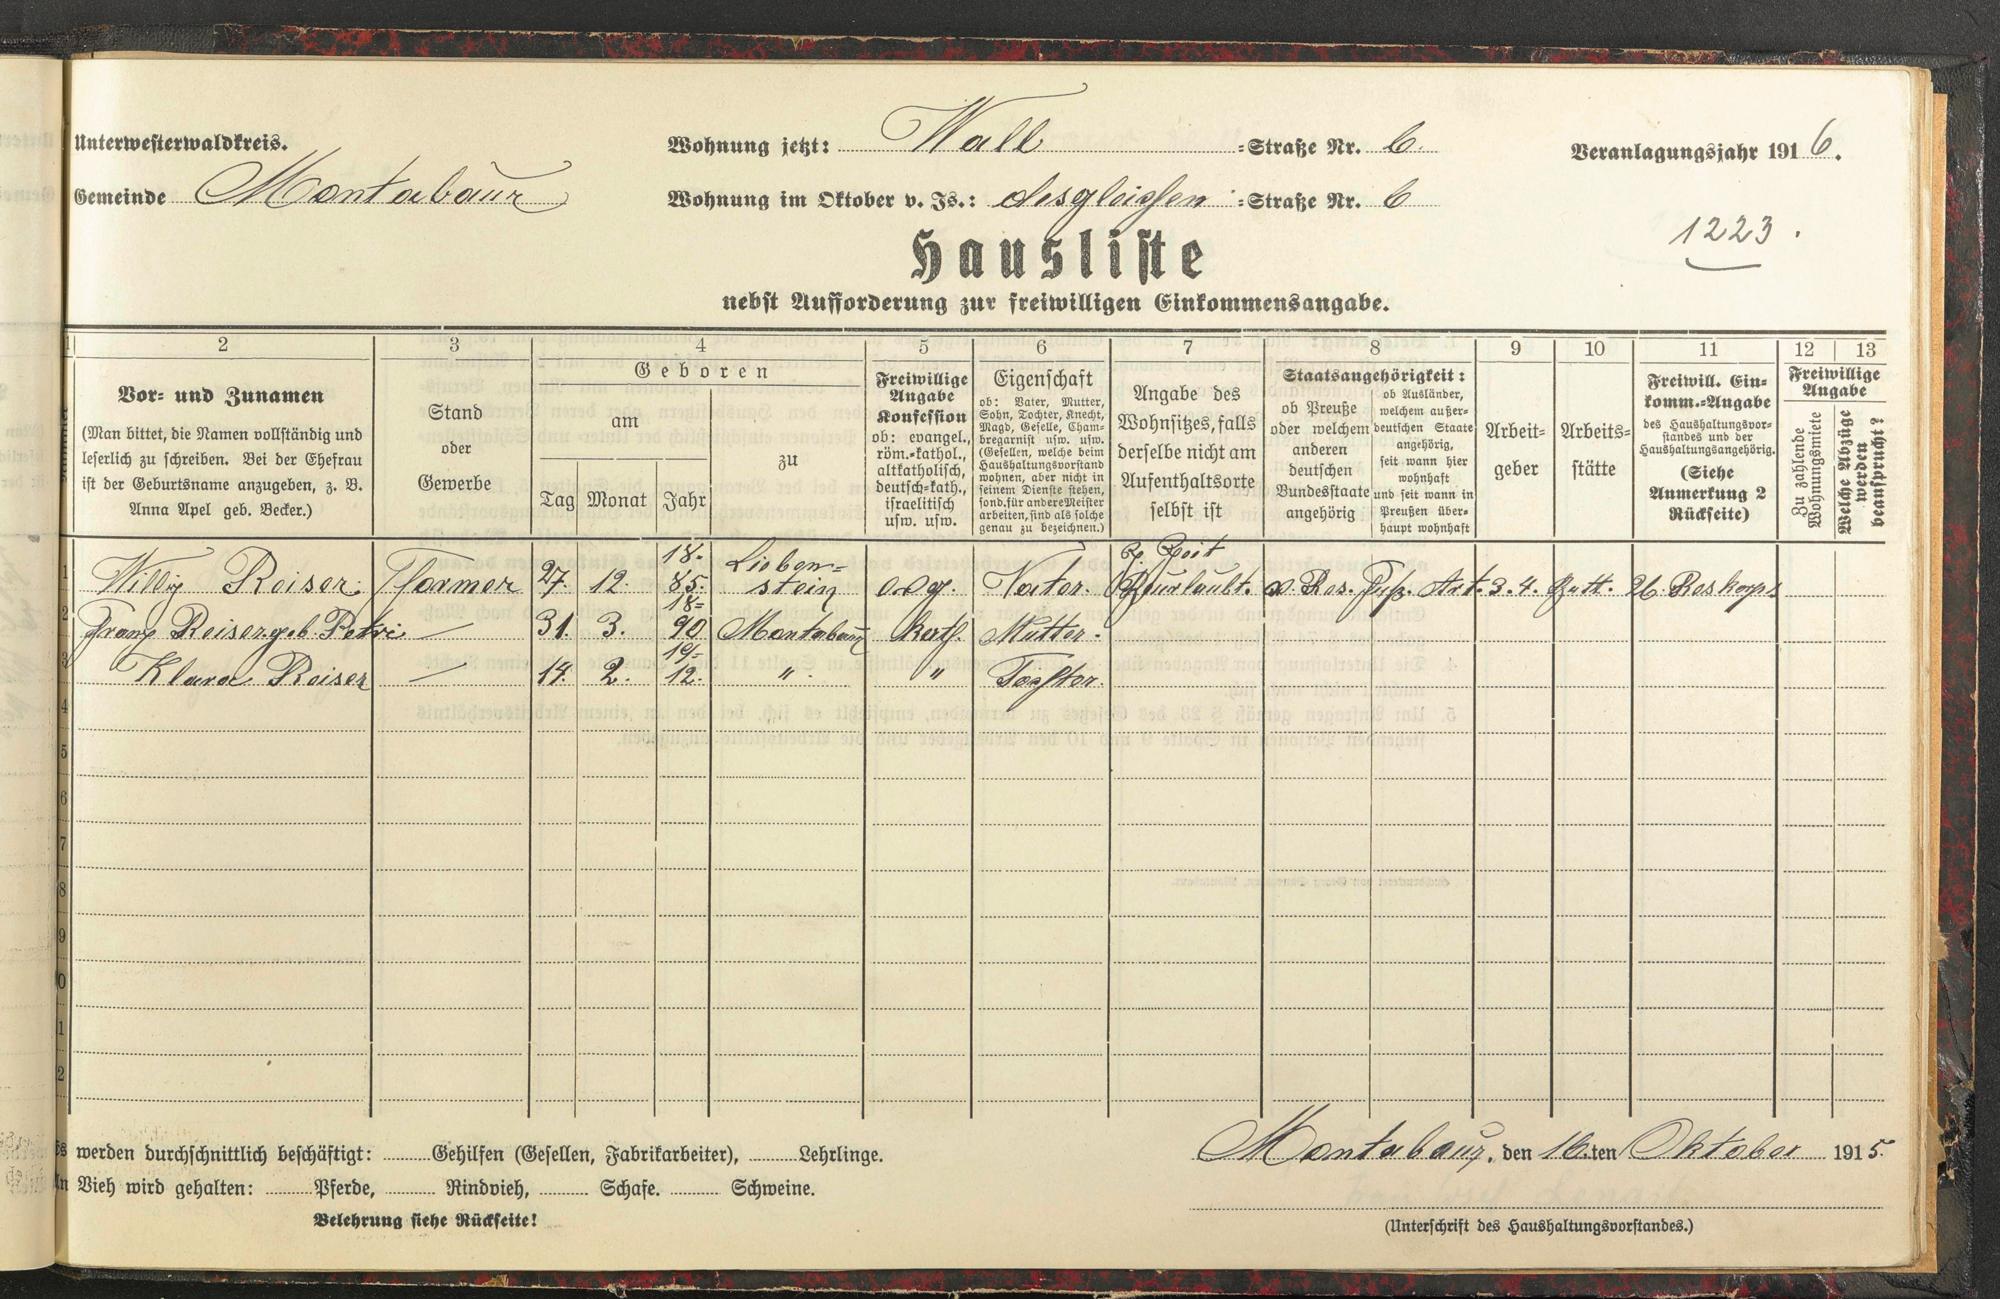 Unterwesterwaldkreis.
Gemeinde Montabaur
Wohnung jetzt: Wall =Straße Nr. 6.
Wohnung im Oktober v. Js.: desgleichen =Straße Nr. 6
Veranlagungsjahr 1916.
1223.
Hausliste
nebst Aufforderung zur freiwilligen Einkommensangabe.
2 3 4 5 6 7 8 9 10 11 12 13
Vor- und Zunamen
(Man bittet, die Namen vollständig und
leserlich zu schreiben. Bei der Ehefrau
ist der Geburtsname anzugeben, z. B.
Anna Apel geb. Becker.)
Stand
oder
Gewerbe
Geboren
am
Tag Monat Jahr
zu
Freiwillige
Angabe
Konfession
ob: evangel.,
röm.-kathol.,
altkatholisch,
deutsch-kath.,
israelitisch
usw. usw.
Eigenschaft
ob: Vater, Mutter,
Sohn, Tochter, Knecht,
Magd, Geselle, Cham-
bregarnist usw. usw.
(Gesellen, welche beim
Haushaltungsvorstand
wohnen, aber nicht in
seinem Dienste stehen,
sond. für andere Meister
arbeiten, sind als solche
genau zu bezeichnen.)
Angabe des
Wohnsitzes, falls
derselbe nicht am
Aufenthaltsorte
selbst ist
Staatsangehörigkeit:
ob Preuße
oder welchem
anderen
deutschen
Bundesstaate
angehörig
ob Ausländer,
welchem außer-
deutschen Staate
angehörig,
seit wann hier
wohnhaft
und seit wann in
Preußen über-
haupt wohnhaft
Arbeit-
geber
Arbeits-
stätte
Freiwill. Ein-
komm.-Angabe
des Haushaltungsvor-
standes und der
Haushaltungsangehörig.
(Siehe
Anmerkung 2
Rückseite)
Freiwillige
Angabe
Zu zahlende
Wohnungsmiete
Welche Abzüge
werden
beansprucht?
1 Willy Reiser Farmer 27. 12. 18-85. Lieben-stein evg. Vater. Zeit Beurlaubt. Res. Fuß. Art. 3. 4. Batt. Reskorps
2 Franz Reiser geb. Petri — 31. 3. 18-90 Montabaur kath. Mutter.
3 Klara Reiser — 14. 2. 19-12. " " Tochter.
4
5
6
7
8
9
0
1
2
werden durchschnittlich beschäftigt: Gehilfen (Gesellen, Fabrikarbeiter), Lehrlinge.
Vieh wird gehalten: Pferde, Rindvieh, Schafe. Schweine.
Belehrung siehe Rückseite!
Montabaur, den 16.ten Oktober 1915.
(Unterschrift des Haushaltungsvorstandes.)